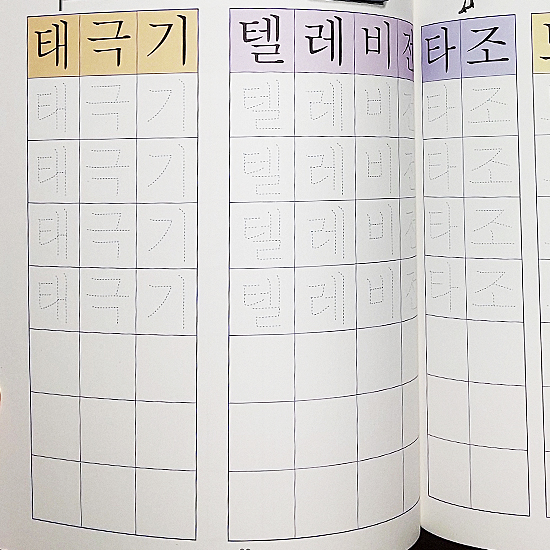 태극기 텔레비전 타조
태극기 텔레비전 타조
태극기 텔레비전 타조
태극기 텔레비전 타조
태극기 텔레비전 타조